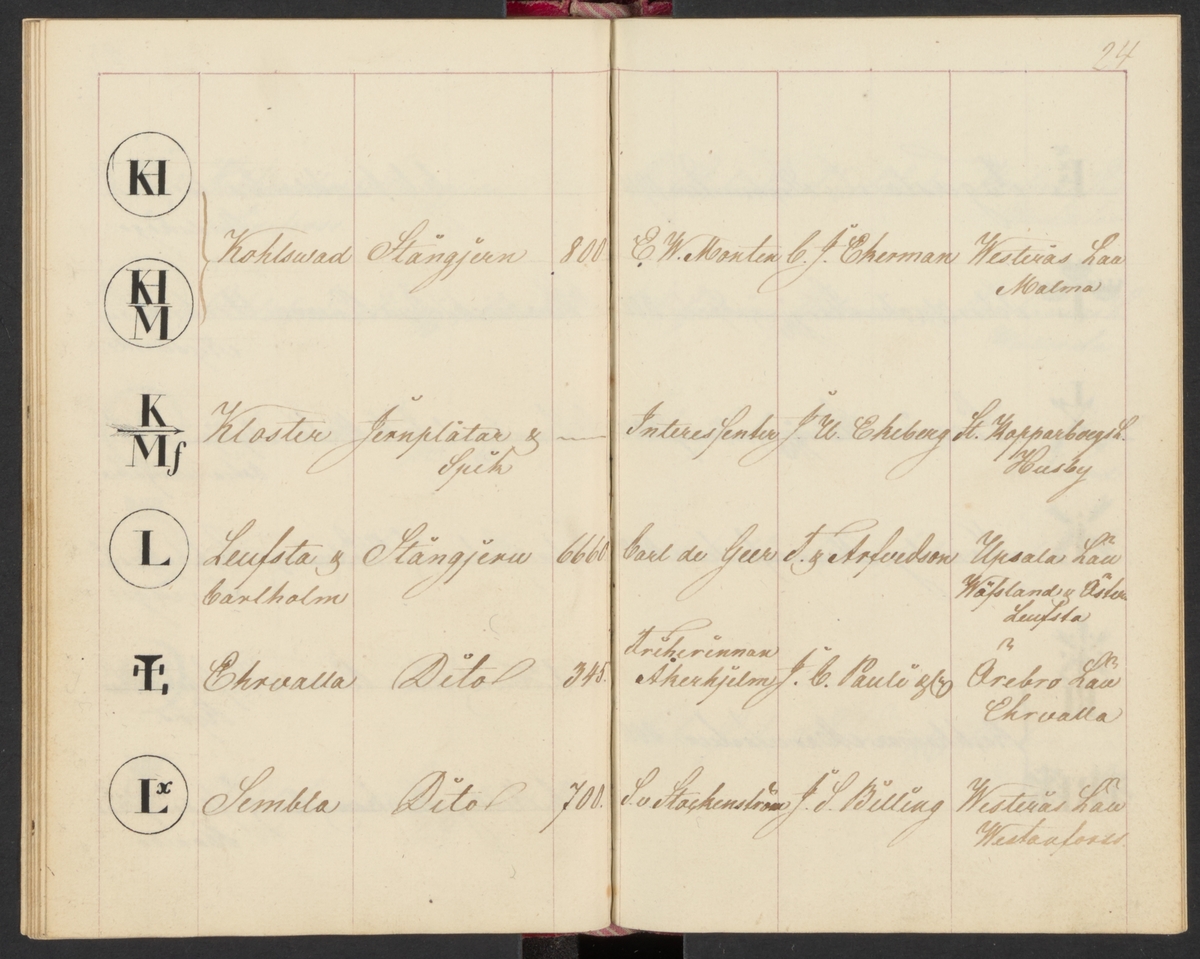 24
KH
Kohlswad Stångjern 800 E. W. Monten C. J. Ekerman Westerås Län
KH
M
Malma
K
Mf
Kloster Jernplåtar & — Interessenter J. U. Ekeberg St. Kopparbergs L.
Spik
Husby
L
Leufsta & Stångjern 6660 Carl de Geer T. & Arfvedson Upsala Län
Carlholm
Wäfsland & Öster
Leufsta
Friherinnan
Ł
Ekrvalla Dito 345. Åkerhjelm J. C. Pauli & Örebro Län
Ekrvalla
Lx
Sembla Dito 700. S. v Stockenström J. S. Billing Westerås Län
Westanfors